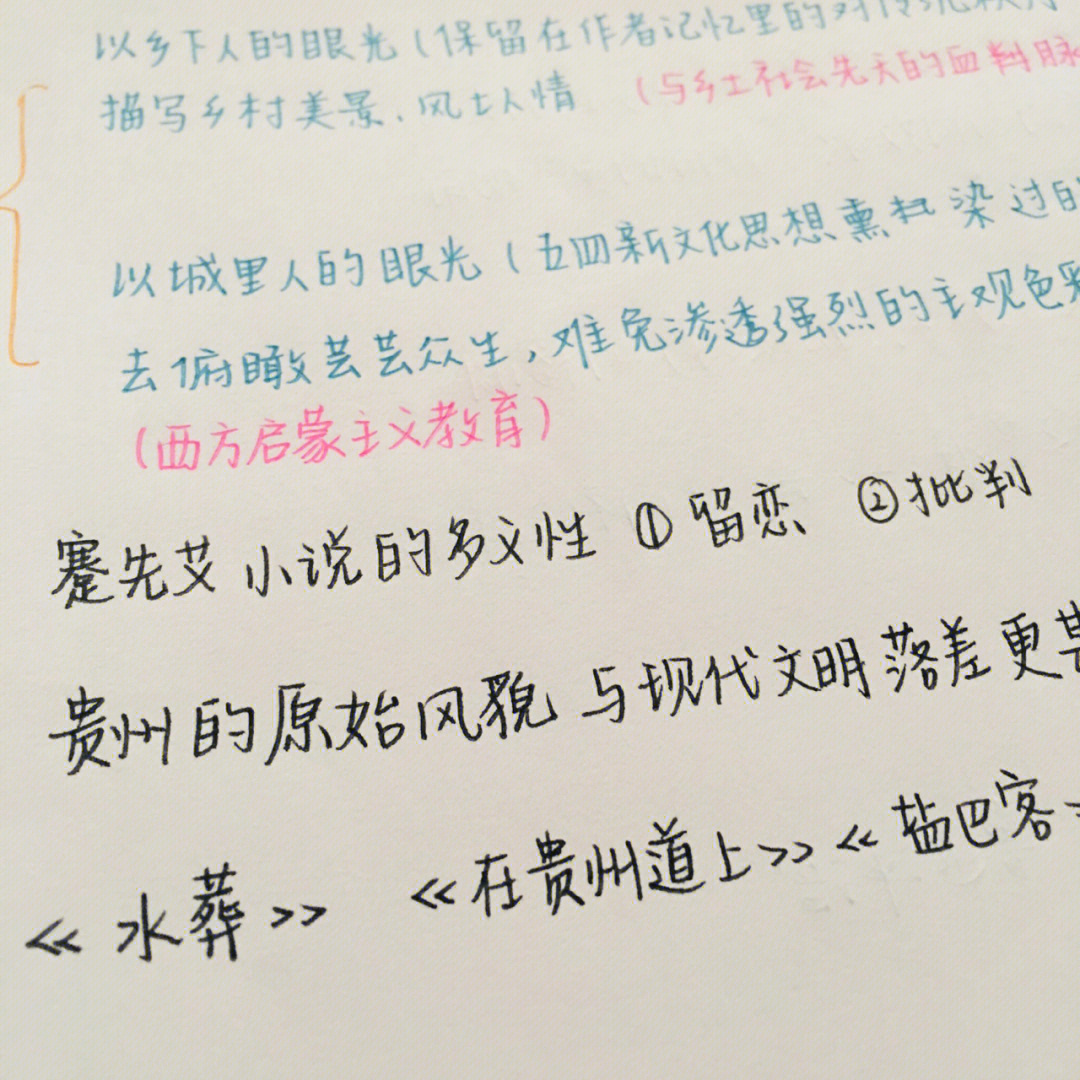 以乡下人的眼光(保留在作者记忆里的对传统
描写乡村美景、风土人情 (与乡土社会先天的血
以城里人的眼光(五四新文化思想熏 染过的
去俯瞰芸芸众生,难免渗透强烈的主观色彩
(西方启蒙主义教育)
蹇先艾小说的多义性 ① 留恋 ②批判
贵州的原始风貌 与现代文明落差更
《水葬》 《在贵州道上》《盐巴客